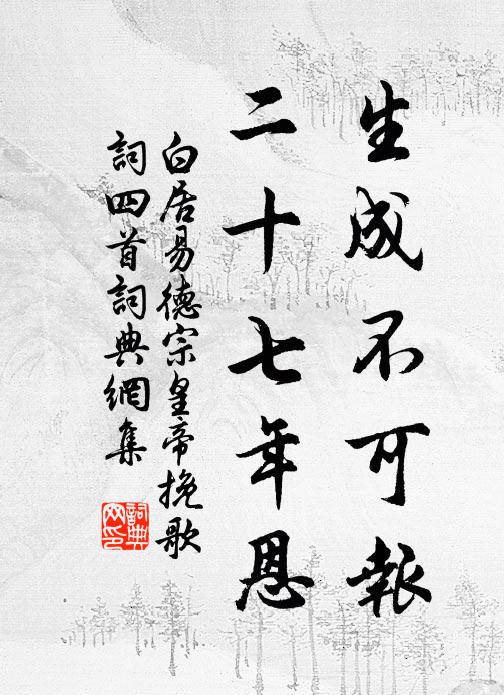 生成不可報
二十七年恩
白居易德宗皇帝挽歌
詞四首詞典網集
詞典
网印